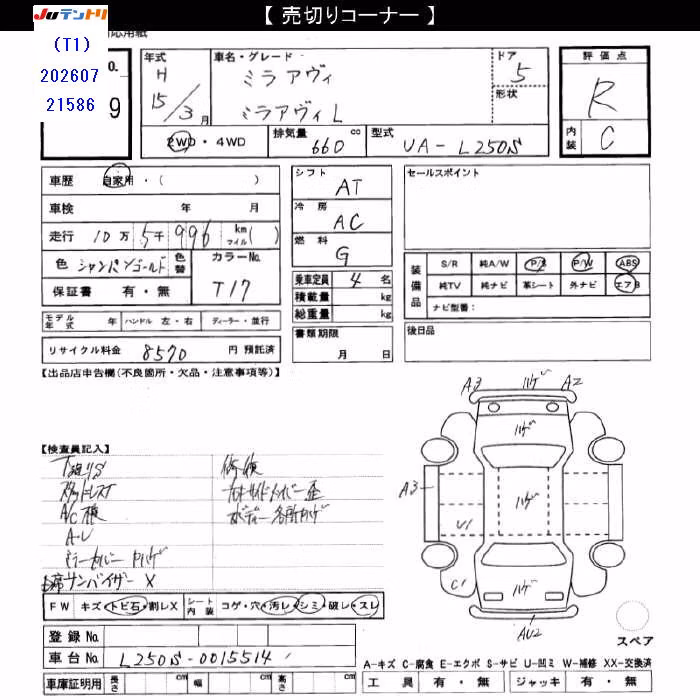 【 売切りコーナー 】
JUテントリ
(T1)
202607
21586
対応用紙
O.
9
年式 H 15/3月
車名・グレード
ミラアヴィ
ミラアヴィ L
ドア 5
形状
評価点 R
内装 C
2WD・4WD
排気量 660 cc
型式 UA-L250S
車歴 自家用・( )
車検 年 月
走行 10万 5千 996 km マイル( )
色 シャンパンゴールド 色替
カラーNo. T17
保証書 有・無
シフト AT
冷房 AC
燃料 G
乗車定員 4 名
積載量 kg
総重量 kg
書類期限 月 日
セールスポイント
装備品
S/R 純A/W P/S P/W ABS
純TV 純ナビ 革シート 外ナビ エアB
ナビ型番:
モデル年式 年 ハンドル 左・右 ディーラー・並行
リサイクル料金 8570 円 預託済
後日品
【出品店申告欄(不良箇所・欠品・注意事項等)】
【検査員記入】
A/C
サンバイザー X
A3 ハゲ A2
ハゲ
A3
ハゲ
U1
ハゲ
C1
AU2
FW キズ・トビ石・割レX
シート内装 コゲ・穴・汚レ・シミ・破レ・スレ
登録 No.
車台 No. L250S-0015514
車庫証明用 長さ cm 幅 cm 高さ cm
スペア
A-キズ C-腐食 E-エクボ S-サビ U-凹ミ W-補修 XX-交換済
工具 有・無 ジャッキ 有・無